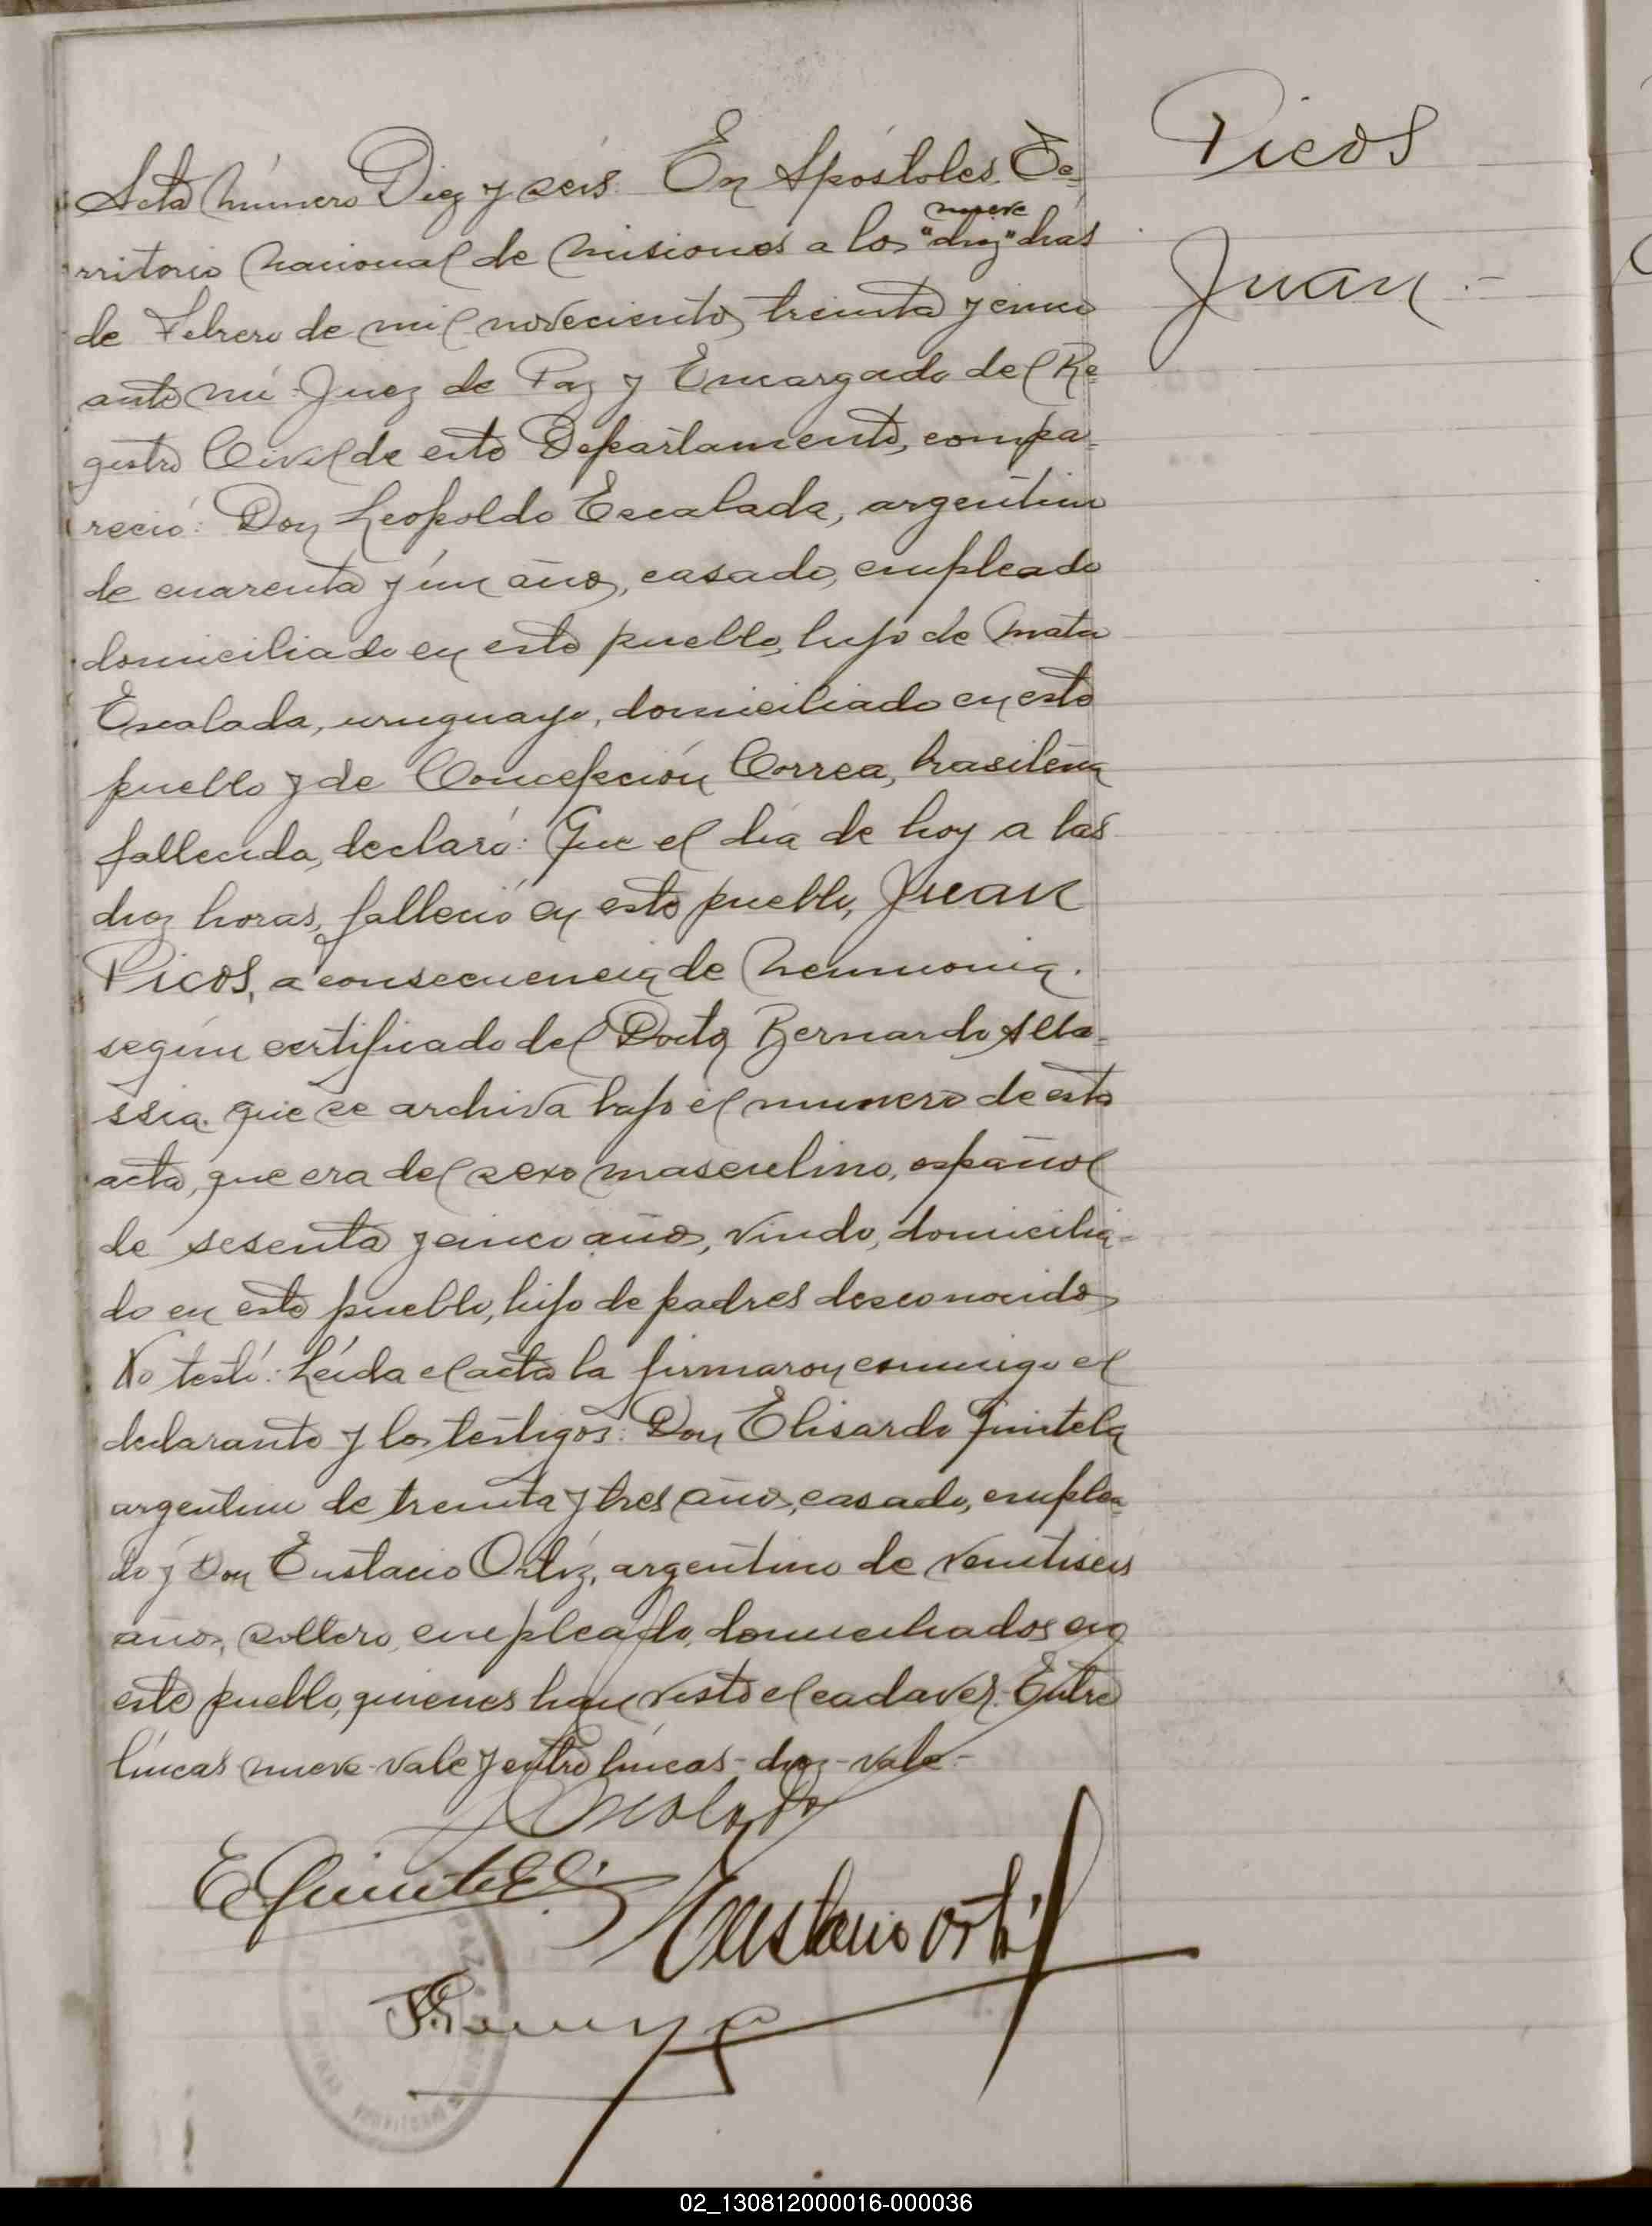 Picos
Juan.-
Acta número Diez y seis. En Apóstoles, Te-
rritorio nacional de Misiones a los "diez" nueve días
de Febrero de mil novecientos treinta y cinco
ante mi Juez de Paz y Encargado del Re-
gistro Civil de este Departamento, compa-
reció: Don Leopoldo Escalada, argentino
de cuarenta y un años, casado, empleado
domiciliado en este pueblo, hijo de
Escalada, uruguayo, domiciliado en este
pueblo y de Concepción Correa, brasileña
fallecida, declaró: Que el día de hoy a las
diez horas, falleció en este pueblo, Juan
Picos, a consecuencia de neumonia.
según certificado del Doctor Bernardo
que se archiva bajo el numero de esta
acta, que era del sexo masculino, español
de sesenta y cinco años, viudo, domicilia-
do en este pueblo, hijo de padres desconocidos
No testó: Leída el acta la firmaron conmigo el
declarante y los testigos: Don Elisardo Quintela
argentino de treinta y tres años, casado, emplea-
do y Don Eustacio Ortíz, argentino de veintiseis
años, soltero, empleado, domiciliados en
este pueblo, quienes han visto el cadaver. Entre
líneas-nueve-vale y entre líneas-diez-vale-
Escalada
E Quintela
Eustacio Ortiz
02_130812000016-000036